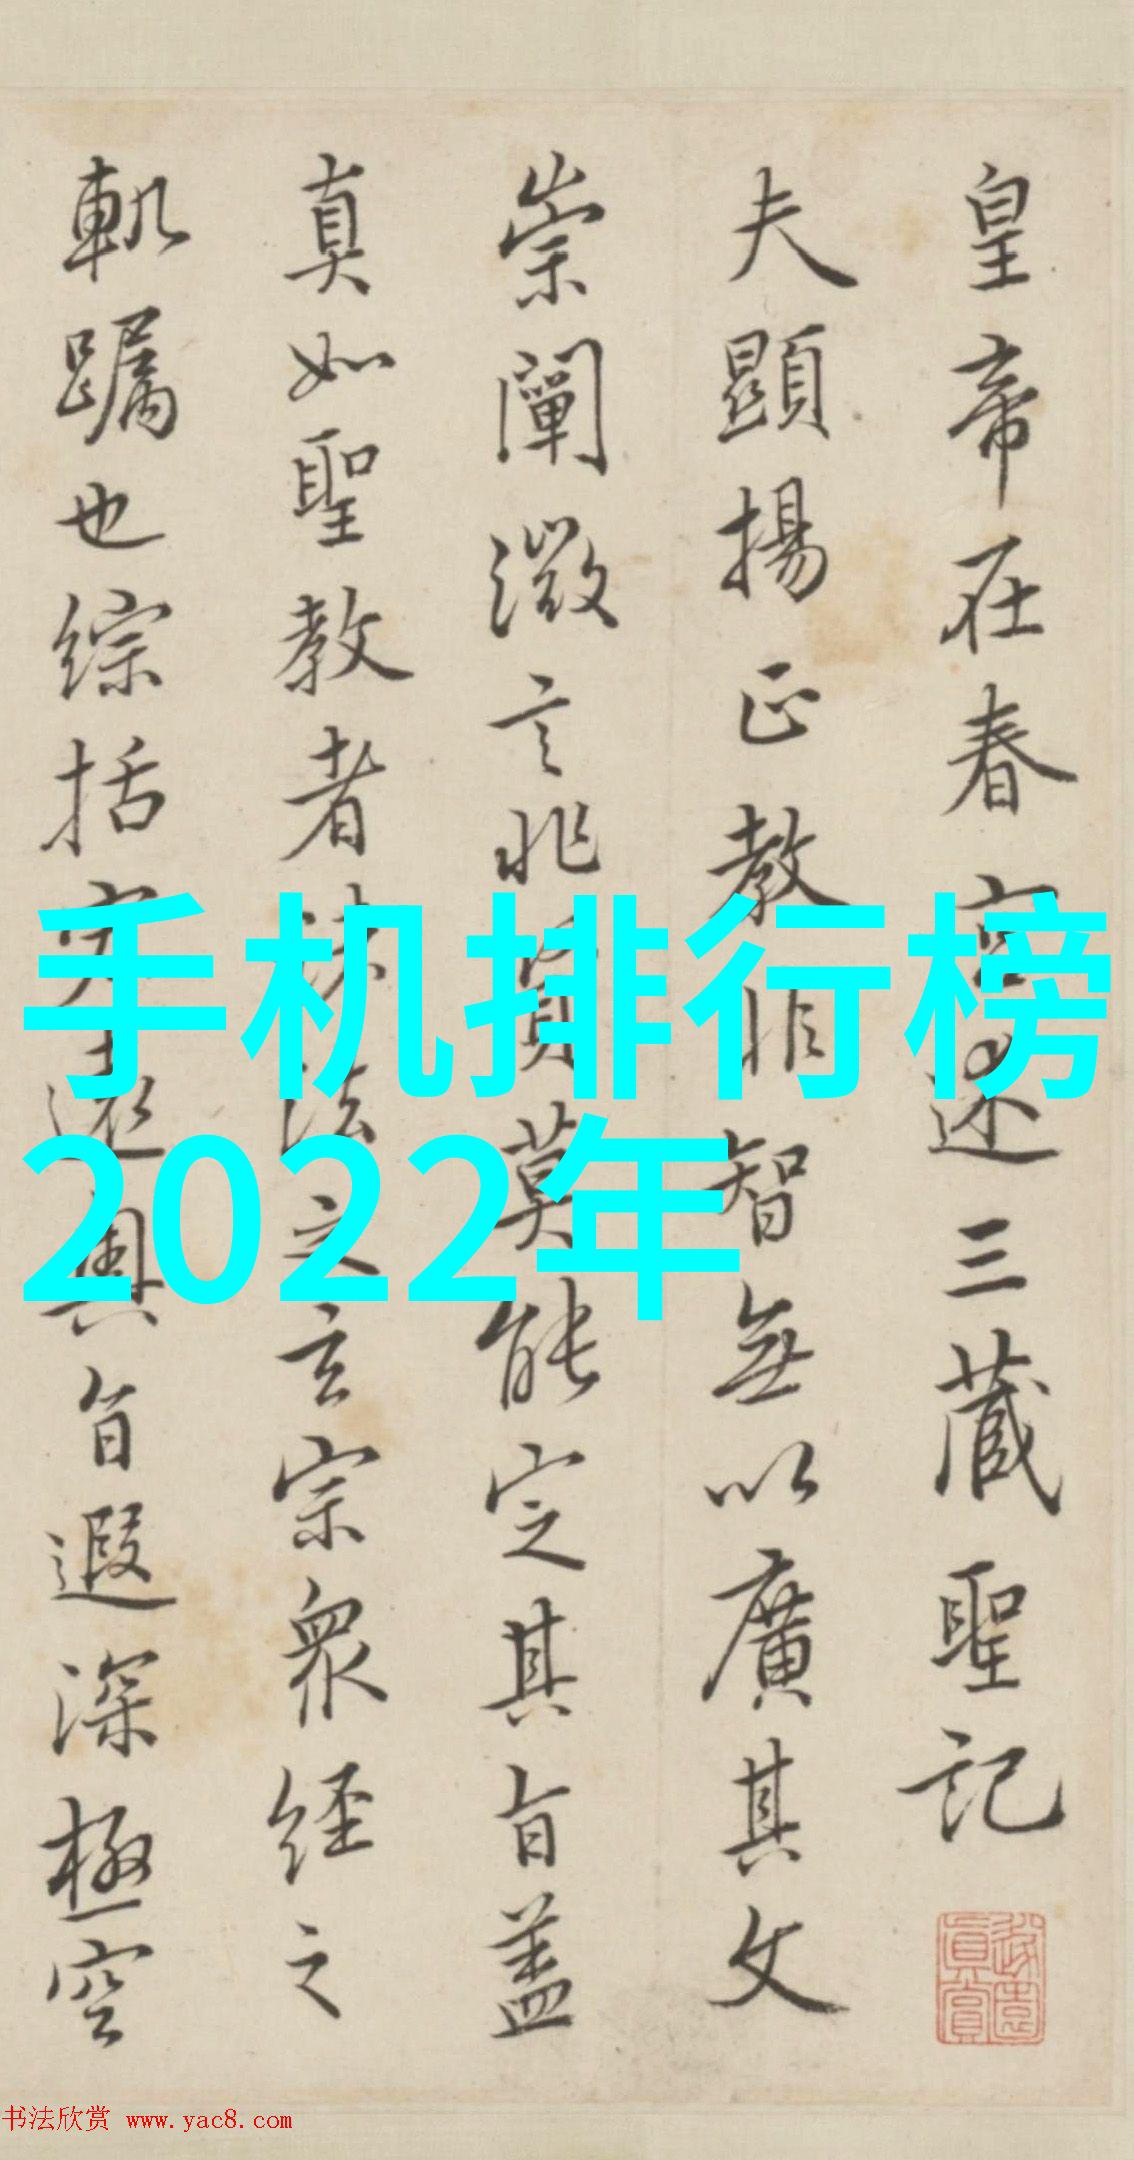 皇帝在春宮述三藏聖記
夫顯揚正教非智無以廣其文
崇闡微言非賢莫能定其旨蓋
真如聖教者諸法之玄宗眾經之
軌躅也綜括宏遠奧旨遐深極空
手机排行榜
2022年
书法欣赏 www.yac8.com